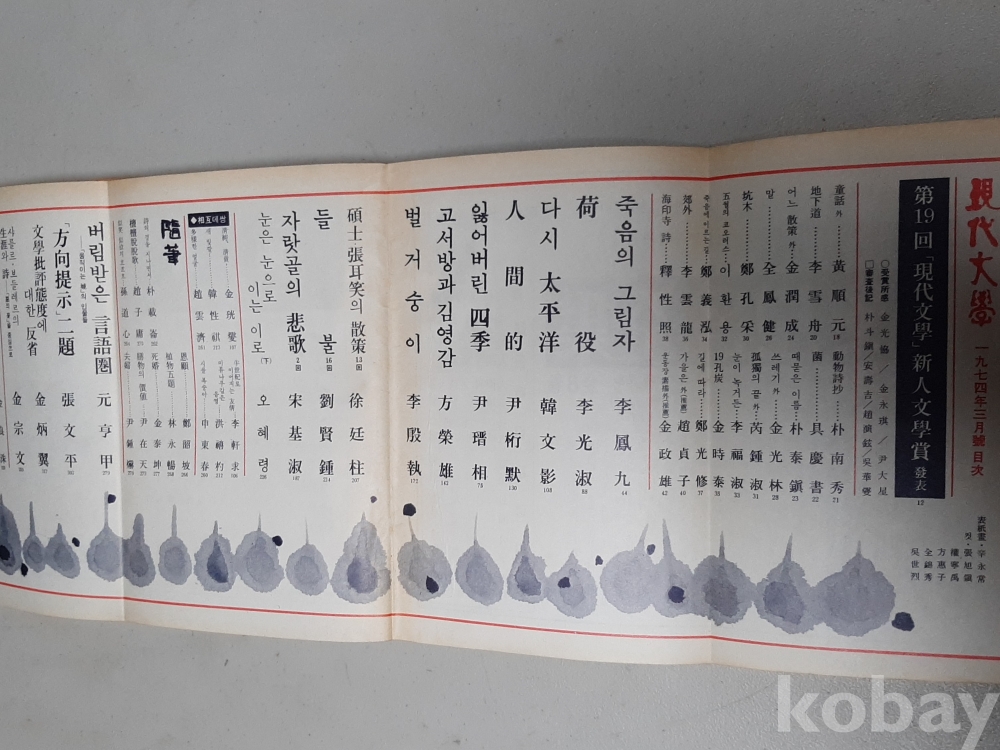 現代文學
一九七四年三月號 目次
表紙畫·辛永常
컷·張旭鎭
方惠子
全錦秀
吳世烈
第19回「現代文學」新人文學賞 發表 12
□受賞所感 金光協／金永琪／尹大星
□審査後記 朴斗鎭／安壽吉／趙演鉉／吳華燮
童話 外 黃順元 18
動物詩抄 朴南秀 21
地下道 李雪舟 20
菌 具慶書 22
어느 散策 外 金潤成 24
때묻은 이름 朴泰鎭 23
말 全鳳健 26
쓰레기 外 金光林 28
坑木 鄭孔采
孤獨의 끝 外 芮鍾淑 31
五월의 코오러스 이환용
눈이 녹거든 李福淑 33
죽음에 이르는 길 鄭義泓 34
19孔炭 金時泰 35
郊外 李雲龍 36
길에 따라 鄭光修 37
海印寺 詩 釋性照 38
가을은 外(推薦) 趙貞子 40
金政雄 42
죽음의 그림자 李鳳九 44
荷役 李光淑
다시 太平洋 韓文影 108
人間的 尹桁默 130
잃어버린 四季 尹瑨相 78
고서방과 김영감 方榮雄 142
벌거숭이 李殷執 172
碩士 張耳笑의 散策 13回 徐廷柱 207
들불 16回 劉賢鍾 224
자랏골의 悲歌 2回 宋基淑 187
눈은 눈으로 이는 이로(下) 오혜령
◆相互데쌍
金珖燮
李軒求
韓性祺
洪禧杓
趙雲濟
申東春
隨筆
朴載崙
恩顧 鄭韶坡
檀檀脫脫歌 趙子庸
植物五題 林永暢
死婚 金泰坤
孫道心
膳物의 價値 尹在天
버림받은 言語圈 元亨甲
「方向提示」二題 張文平
文學批評態度에 대한 反省 金炳翼
샤를르·보들레르의 生涯와 詩 金宗文
kobay